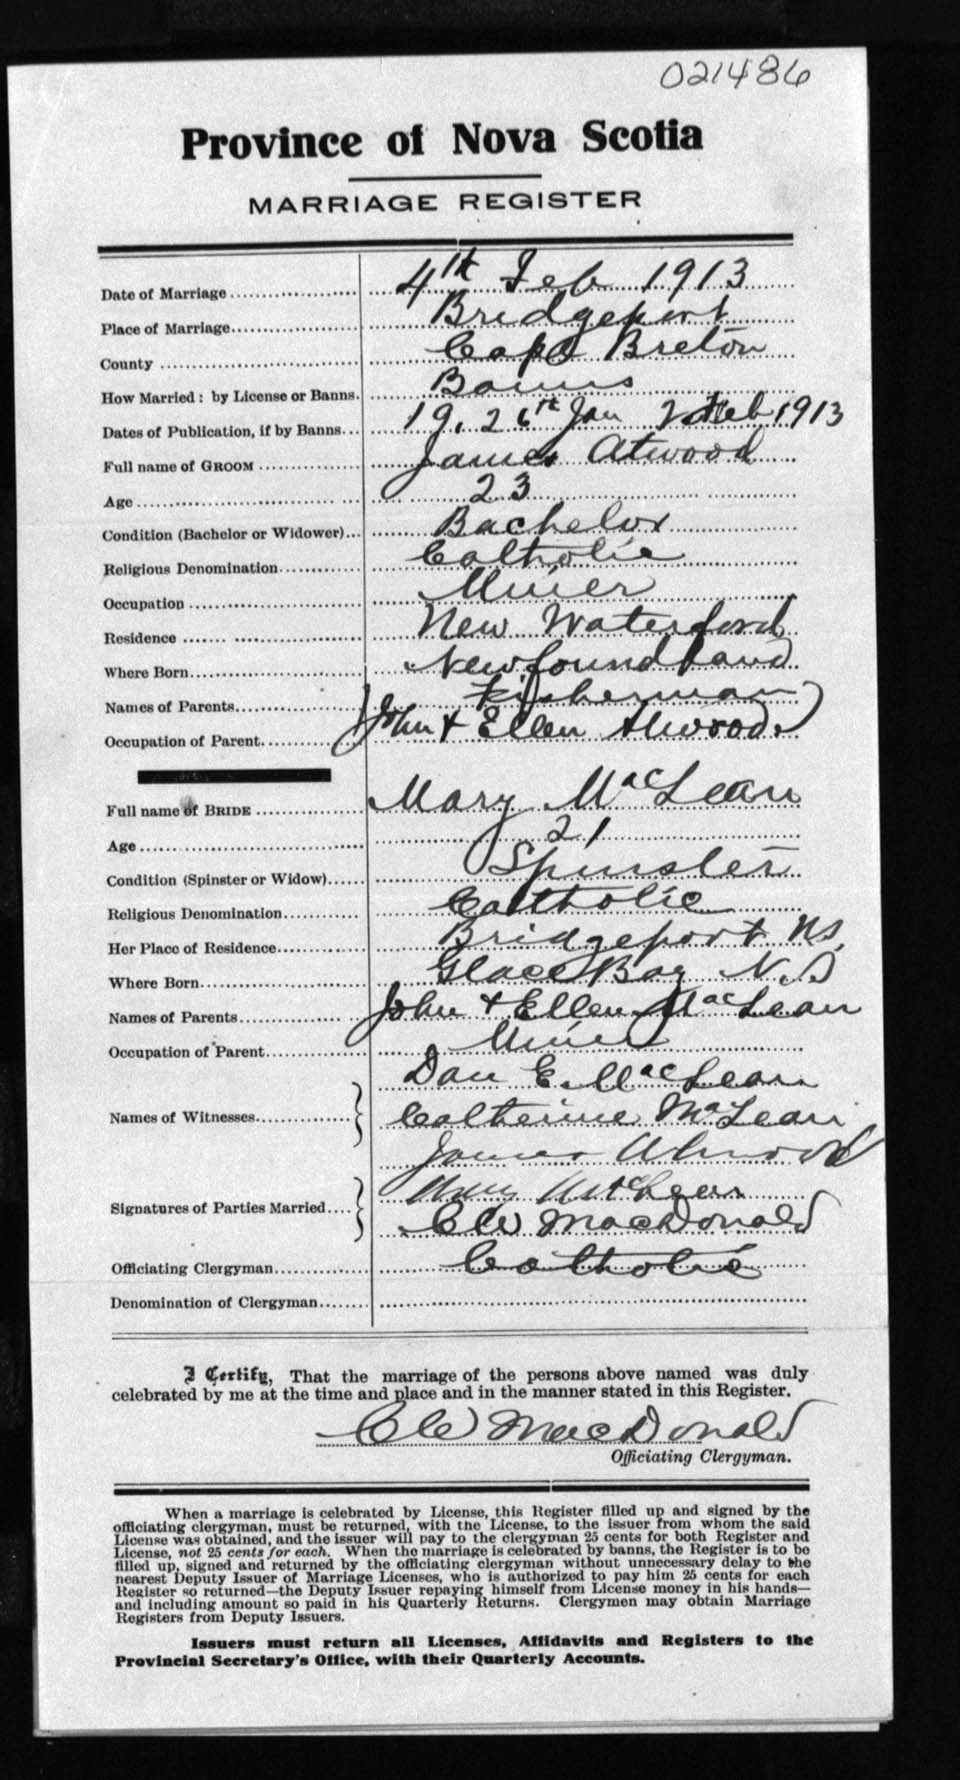 021486
Province of Nova Scotia
MARRIAGE REGISTER
Date of Marriage 4th Feb 1913
Place of Marriage Bridgeport
County Cape Breton
How Married: by License or Banns. Banns
Dates of Publication, if by Banns 19, 26th Jan 2 Feb 1913
Full name of GROOM James Atwood
Age 23
Condition (Bachelor or Widower) Bachelor
Religious Denomination Catholic
Occupation Miner
Residence New Waterford
Where Born Newfoundland
Names of Parents Fisherman
Occupation of Parent John & Ellen Atwood
Full name of BRIDE Mary MacLean
Age 21
Condition (Spinster or Widow) Spinster
Religious Denomination Catholic
Her Place of Residence Bridgeport NS.
Where Born Glace Bay N.S
Names of Parents John & Ellen MacLean
Occupation of Parent Miner
Dan E. MacLean
Names of Witnesses Catherine McLean
James Atwood
Signatures of Parties Married Mary McLean
CW MacDonald
Officiating Clergyman Catholic
Denomination of Clergyman
I Certify, That the marriage of the persons above named was duly
celebrated by me at the time and place and in the manner stated in this Register.
CW MacDonald
Officiating Clergyman.
When a marriage is celebrated by License, this Register filled up and signed by the
officiating clergyman, must be returned, with the License, to the issuer from whom the said
License was obtained, and the issuer will pay to the clergyman 25 cents for both Register and
License, not 25 cents for each. When the marriage is celebrated by banns, the Register is to be
filled up, signed and returned by the officiating clergyman without unnecessary delay to the
nearest Deputy Issuer of Marriage Licenses, who is authorized to pay him 25 cents for each
Register so returned—the Deputy Issuer repaying himself from License money in his hands—
and including amount so paid in his Quarterly Returns. Clergymen may obtain Marriage
Registers from Deputy Issuers.
Issuers must return all Licenses, Affidavits and Registers to the
Provincial Secretary's Office, with their Quarterly Accounts.